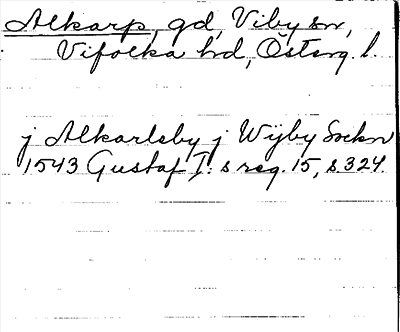 Alkarp, gd, Viby sn,
Vifolka hd, Östrg. l.
j Alkarleby j Wijby Sockn
1543 Gustaf I:s reg. 15, s. 324.